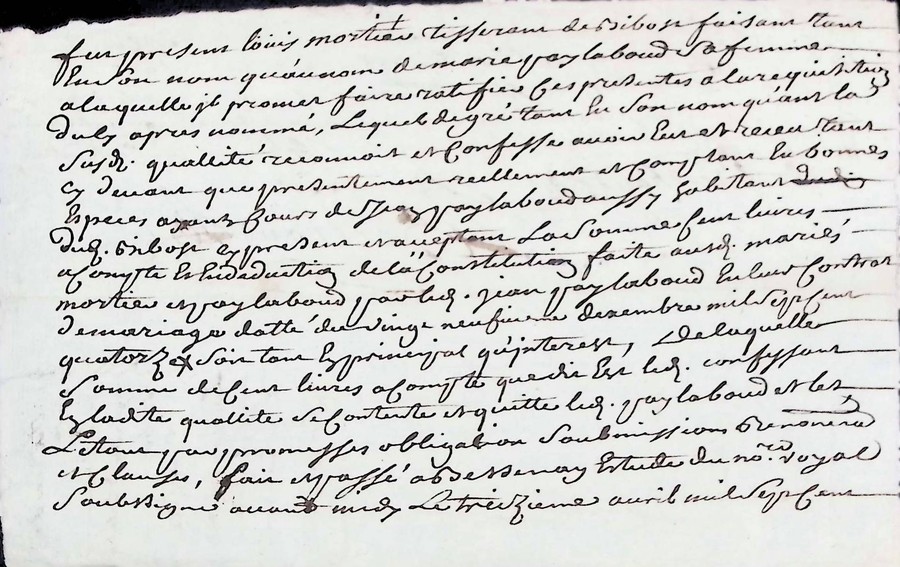 fut present louis mortier tisserant de Bibost faisant tant
En Son nom qu'au nom de marie paylaboud Sa femme
a laquelle jl promet faire ratifier Ces presentes a la requisition
du Sr apres nommé, Lequel de gré tant En Son nom qu'ant la
Susd. quallité reconnoit et Confesse avoir Eut et receu tant
cy devant que presentement reellement et Comptant En bonnes
Especes ayant Cours de Jean paylaboud aussy habitant
dud. Bibost cy present et acceptant La Somme Cent livres
a Compte Et En deduction de la Constitution faite ausd. mariés
mortier et paylaboud par led. jean paylaboud En leur Contrat
de mariage datté du vingt neufvieme dexembre mil Sept Cent
quatorze Soit tant En principal qu'interest, De laquelle
Somme de Cent livres a Compte que dit Est led. confessant
En ladite qualite Se Contente et quitte led. paylaboud et
Le tout par promesses obligation Soubmissions renona
et Clauses, fait et passé a Bessenay Estude du nore. royal
Soubsigné avant midy Le treizieme avril mil Sept Cent